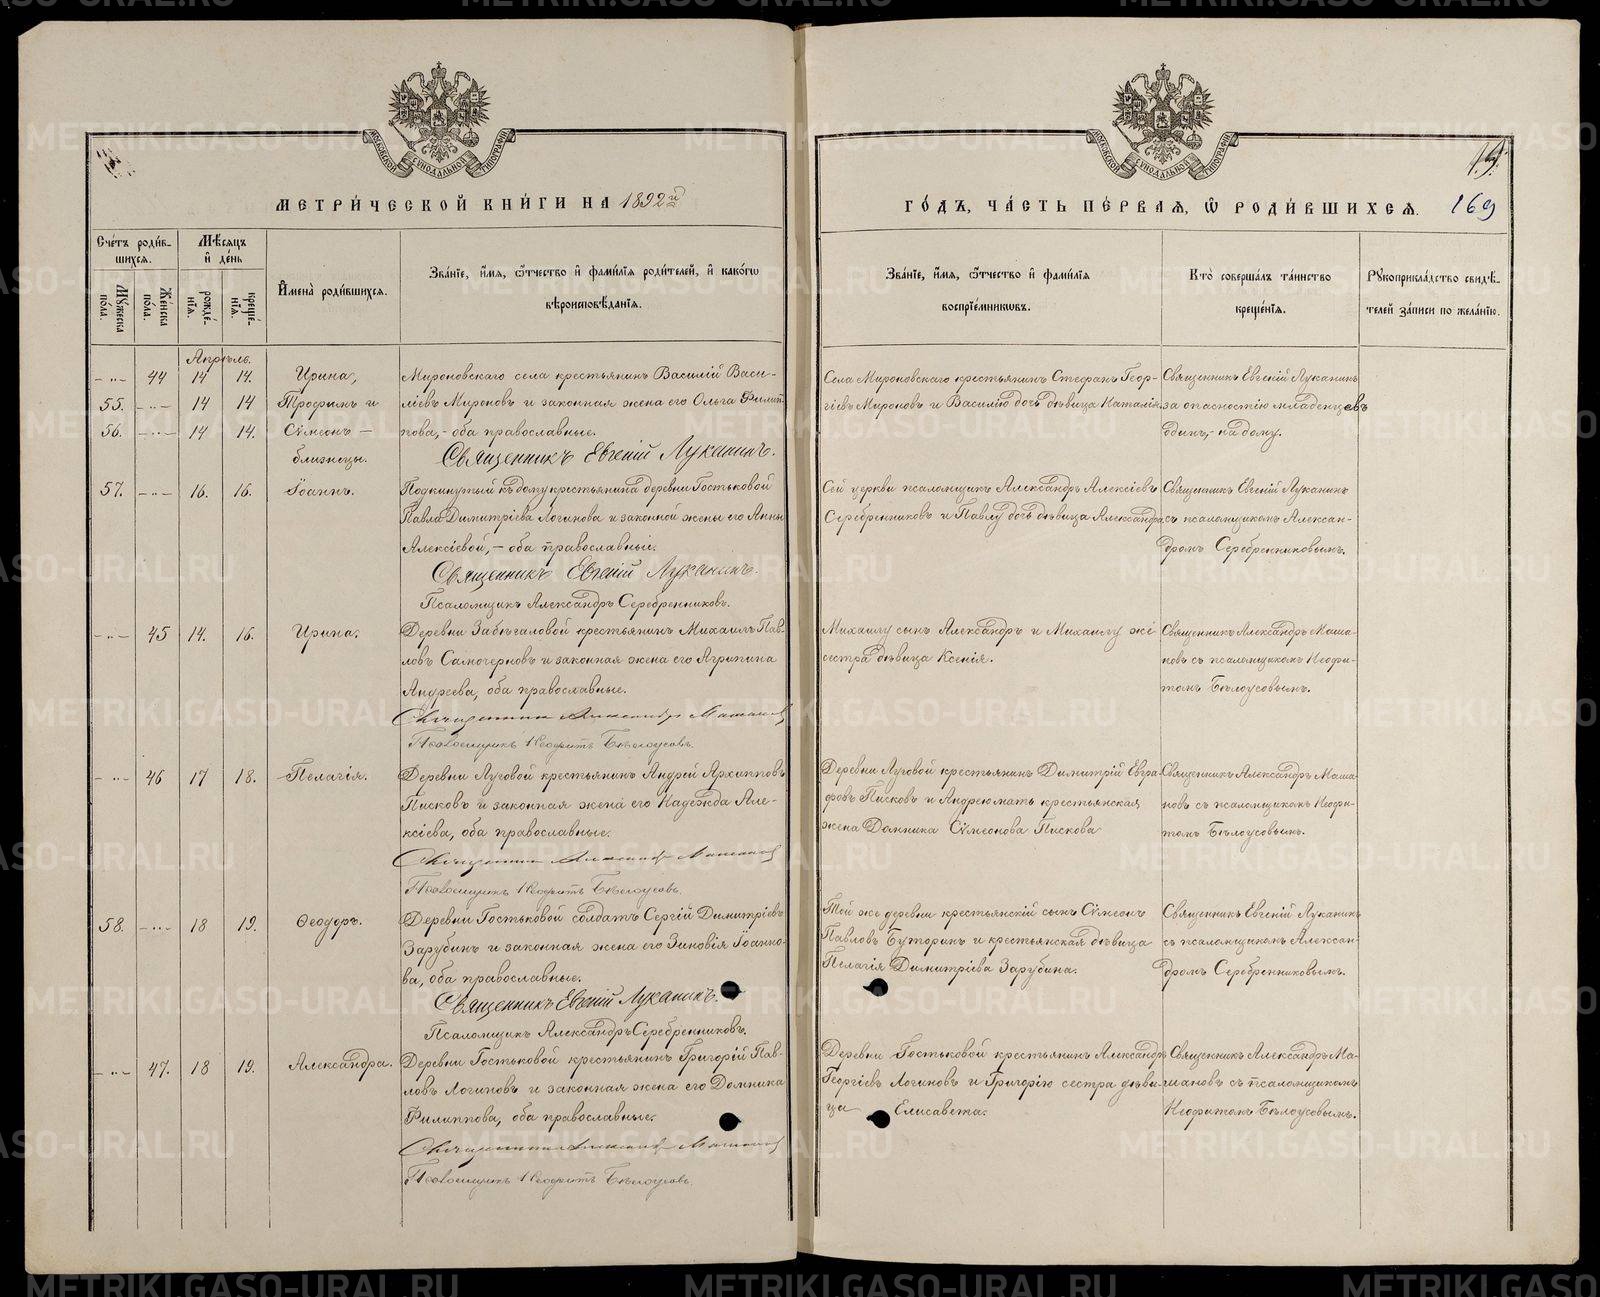 МЕТРИ́ЧЕСКОЙ КНИ́ГИ НА 1892й
ГО́ДЪ, ЧА́СТЬ ПЕ́РВАЯ, Ѽ РОДИ́ВШИХСЯ.
19.
169
Сче́тъ роди́в-
шихся.
Мѣ́сяцъ
и҆ де́нь
Му́жеска
по́ла.
Же́нска
по́ла.
рожде́-
нїя.
креще́-
нїя.
И҆мена̀ роди́вшихся.
Зва́нїе, и҆́мя, ѻ҆́тчество и҆ фами́лїя роди́телей, и҆ како́гѡ
вѣроисповѣ́данїя.
Зва́нїе, и҆́мя, ѻ҆́тчество и҆ фами́лїя
воспрїе́мниковъ.
Кто̀ соверша́лъ та́инство
креще́нїя.
Рꙋкоприкла́дство свидѣ́-
телей за́писи по жела́нїю.
Апрѣль.
-„- 44 14 14. Ирина,
55. -„- 14 14 Трофимъ и
56. -„- 14 14. Сѵмеонъ —
близнецы.
Мироновскаго села крестьянинъ Василій Васи-
ліевъ Мироновъ и законная жена его Ольга Филип-
пова,- оба православные.
Священникъ Евгеній Луканинъ.
Села Мироновскаго крестьянинъ Стефанъ Геор-
гіевъ Мироновъ и Василію дочь дѣвица Наталія.
Священникъ Евгеній Луканинъ
за опасностію младенцевъ
одинъ,- на дому.
57. -„- 16. 16. Іоаннъ.
Подкинутый къ дому крестьянина деревни Гостьковой
Павла Димитріева Логинова и законной жены его Анны
Алексіевой,- оба православные.
Священникъ Евгеній Луканинъ.
Псаломщикъ Александръ Серебренниковъ.
Сей церкви псаломщикъ Александръ Алексіевъ
Серебренниковъ и Павлу дочь дѣвица Александра
Священникъ Евгеній Луканинъ
съ псаломщикомъ Алексан-
дромъ Серебренниковымъ.
-„- 45 14. 16. Ирина.
Деревни Забѣгаловой крестьянинъ Михаилъ Пав-
ловъ Самочерновъ и законная жена его Агрипина
Андреева, оба православные.
Священникъ Александръ Машановъ
Псаломщикъ Неофитъ Бѣлоусовъ.
Михаилу сынъ Александръ и Михаилу же
сестра дѣвица Ксенія.
Священникъ Александръ Маша-
новъ съ псаломщикомъ Неофи-
томъ Бѣлоусовымъ.
-„- 46 17 18. Пелагія.
Деревни Луговой крестьянинъ Андрей Архипповъ
Писковъ и законная жена его Надежда Але-
ксіева, оба православные.
Священникъ Александръ Машановъ
Псаломщикъ Неофитъ Бѣлоусовъ.
Деревни Луговой крестьянинъ Димитрій Евгра-
фовъ Писковъ и Андрею мать крестьянская
жена Домника Сѵмеонова Пискова
Священникъ Александръ Маша-
новъ съ псаломщикомъ Неофи-
томъ Бѣлоусовымъ.
58. -„- 18 19. Ѳеодоръ.
Деревни Гостьковой солдатъ Сергій Димитріевъ
Зарубинъ и законная жена его Зиновія Іоанно-
ва, оба православные.
Священникъ Евгеній Луканинъ.
Псаломщикъ Александръ Серебренниковъ.
Той же деревни крестьянскій сынъ Сѵмеонъ
Павловъ Буторинъ и крестьянская дѣвица
Пелагія Димитріева Зарубина.
Священникъ Евгеній Луканинъ
съ псаломщикомъ Алексан-
дромъ Серебренниковымъ.
-„- 47. 18 19. Александра.
Деревни Гостьковой крестьянинъ Григорій Пав-
ловъ Логиновъ и законная жена его Домника
Филиппова, оба православные.
Священникъ Александръ Машановъ
Псаломщикъ Неофитъ Бѣлоусовъ.
Деревни Гостьковой крестьянинъ Александръ
Георгіевъ Логиновъ и Григорію сестра дѣви-
ца Елисавета.
Священникъ Александръ Ма-
шановъ съ псаломщикомъ
Неофитомъ Бѣлоусовымъ.
METRIKI.GASO-URAL.RU